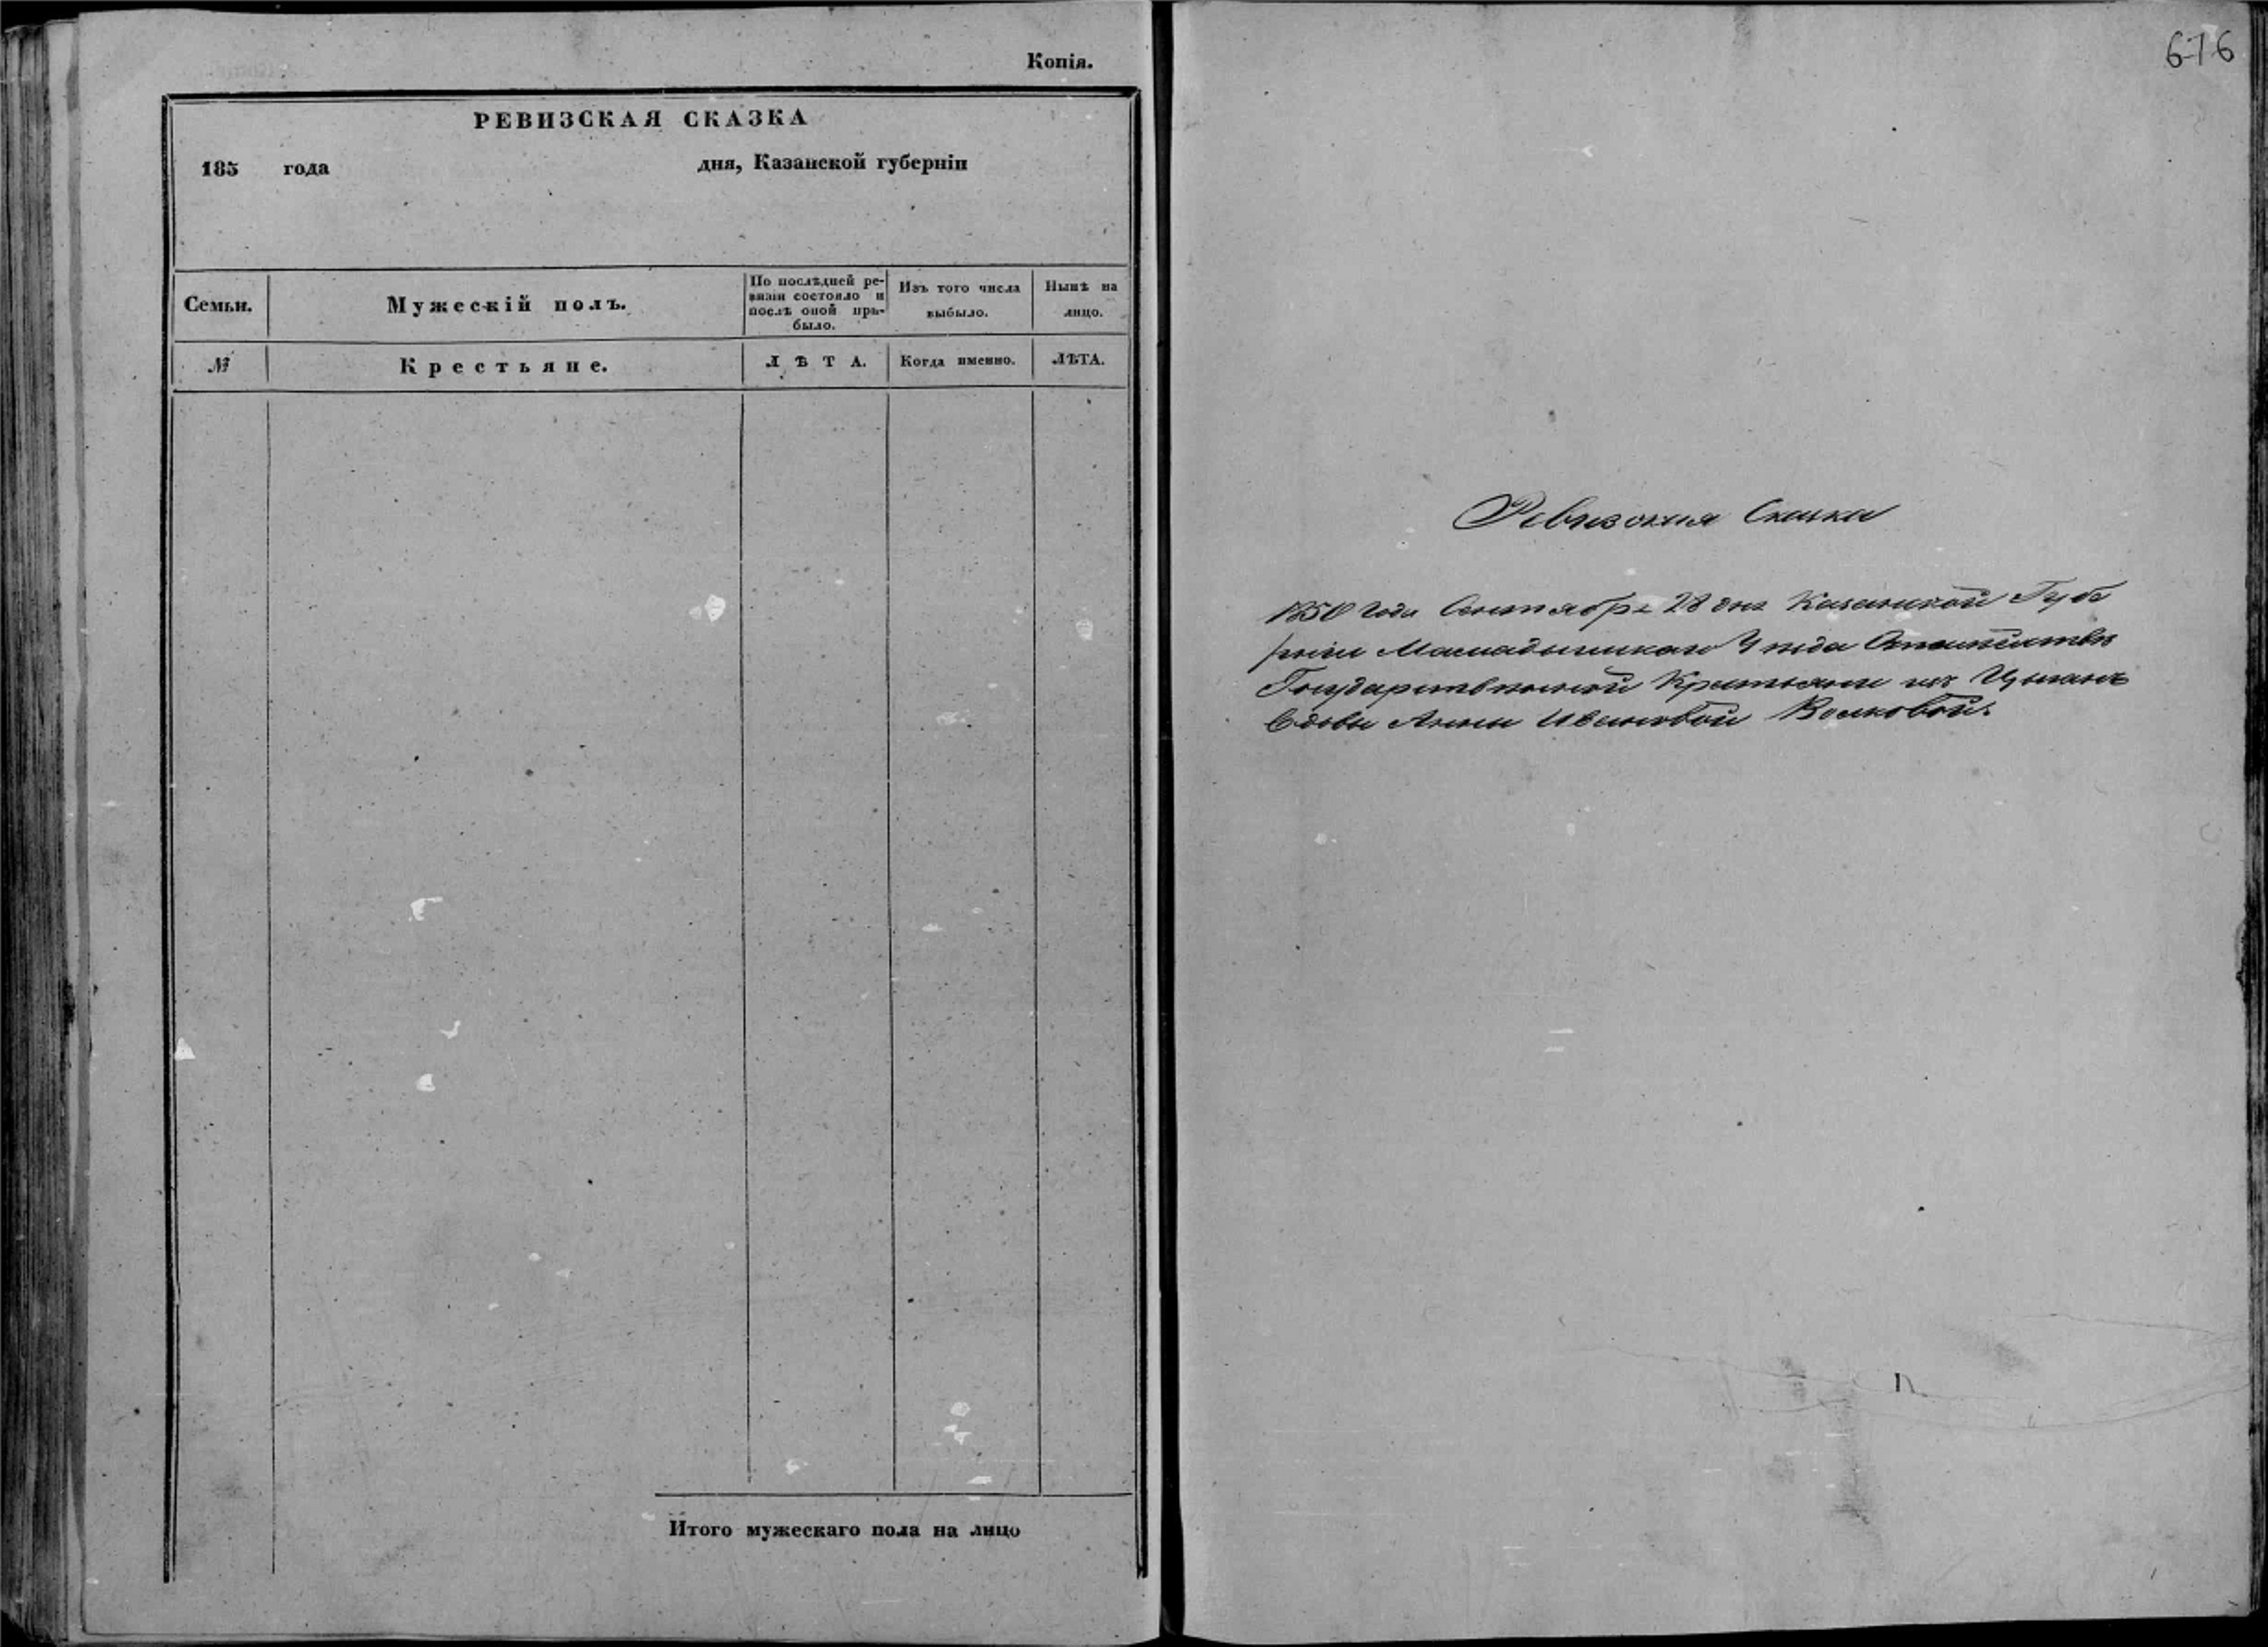 Копія.
РЕВИЗСКАЯ СКАЗКА
185 года дня, Казанской губерніи
Семьи.
Мужескій полъ.
По послѣдней ре-
визіи состояло и
послѣ оной при-
было.
Изъ того числа
выбыло.
Нынѣ на
лицо.
№
Крестьяне.
ЛѢТА.
Когда именно.
ЛѢТА.
Итого мужескаго пола на лицо
676
Ревизская Сказка
1850 года Сентября 28 дня Казанской Губе
рніи Мамадышскаго Уезда
Государственной Крестьянки изъ Цыганъ
Вдовы Анны Ивановой Волковой.